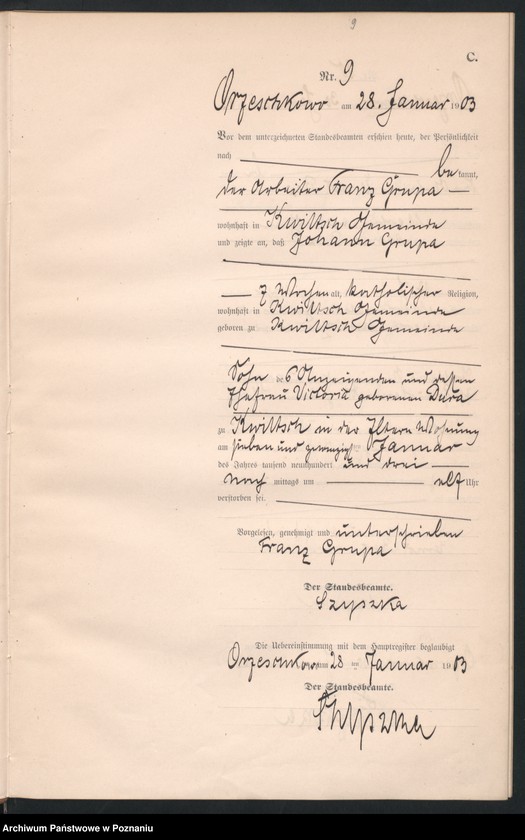 9
C.
Nr. 9
Orzeschkowo am 28. Januar 1903
Vor dem unterzeichneten Standesbeamten erschien heute, der Persönlichkeit
nach be kannt,
der Arbeiter Franz Grupa
wohnhaft in Kwiltsch Gemeinde
und zeigte an, daß Johann Grupa
7 Wochen alt, katholischer Religion,
wohnhaft in Kwiltsch Gemeinde
geboren zu Kwiltsch Gemeinde
Sohn des Anzeigenden und dessen
Ehefrau Victoria geborenen Dura
zu Kwiltsch in der Eltern Wohnung
am sieben und zwanzigsten Januar
des Jahres tausend neunhundert und drei
nach mittags um elf Uhr
verstorben sei.
Vorgelesen, genehmigt und unterschrieben
Franz Grupa
Der Standesbeamte.
Szyszka
Die Uebereinstimmung mit dem Hauptregister beglaubigt
Orzeschkowo am 28 ten Januar 1903
Der Standesbeamte.
Szyszka
Archiwum Państwowe w Poznaniu